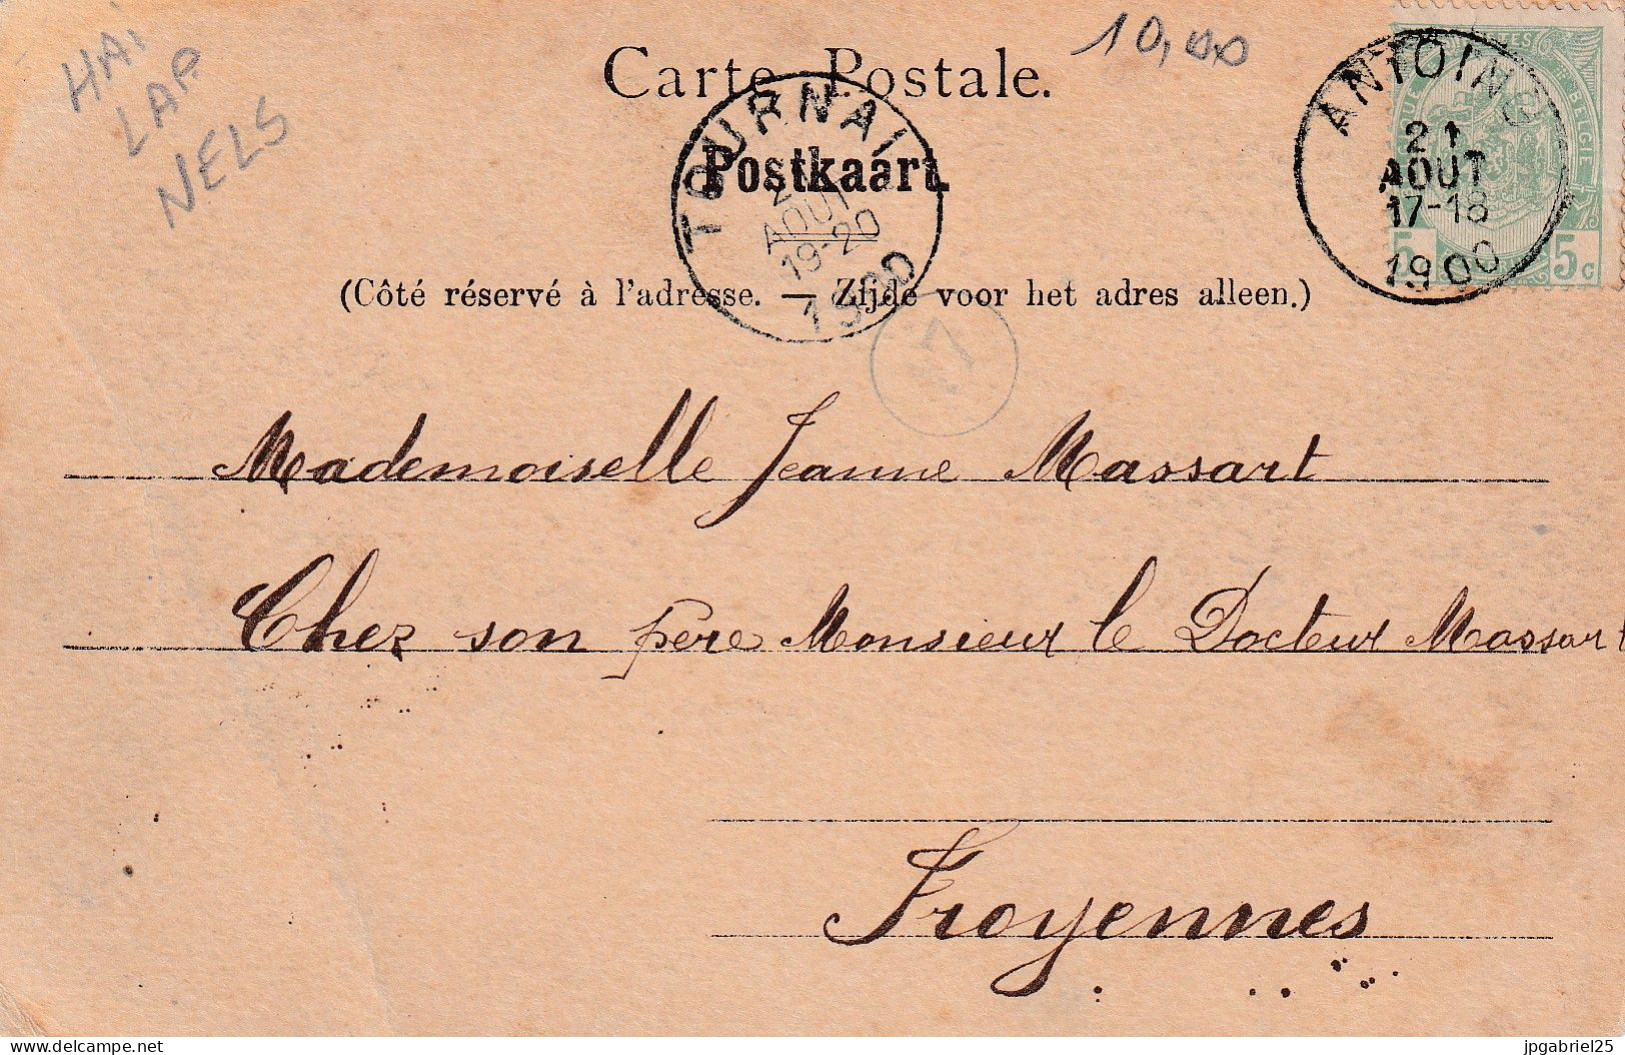 HAI
LAP
NELS
10,00
Carte Postale.
Postkaart.
(Côté réservé à l'adresse. — Zijde voor het adres alleen.)
TOURNAI
AOUT
19-20
1900
ANTOING
21
AOUT
17-18
1900
BELGIE
5 5c
7
Mademoiselle Jeanne Massart
Chez son père Monsieur le Docteur Massart
Froyennes
jpgabriel25